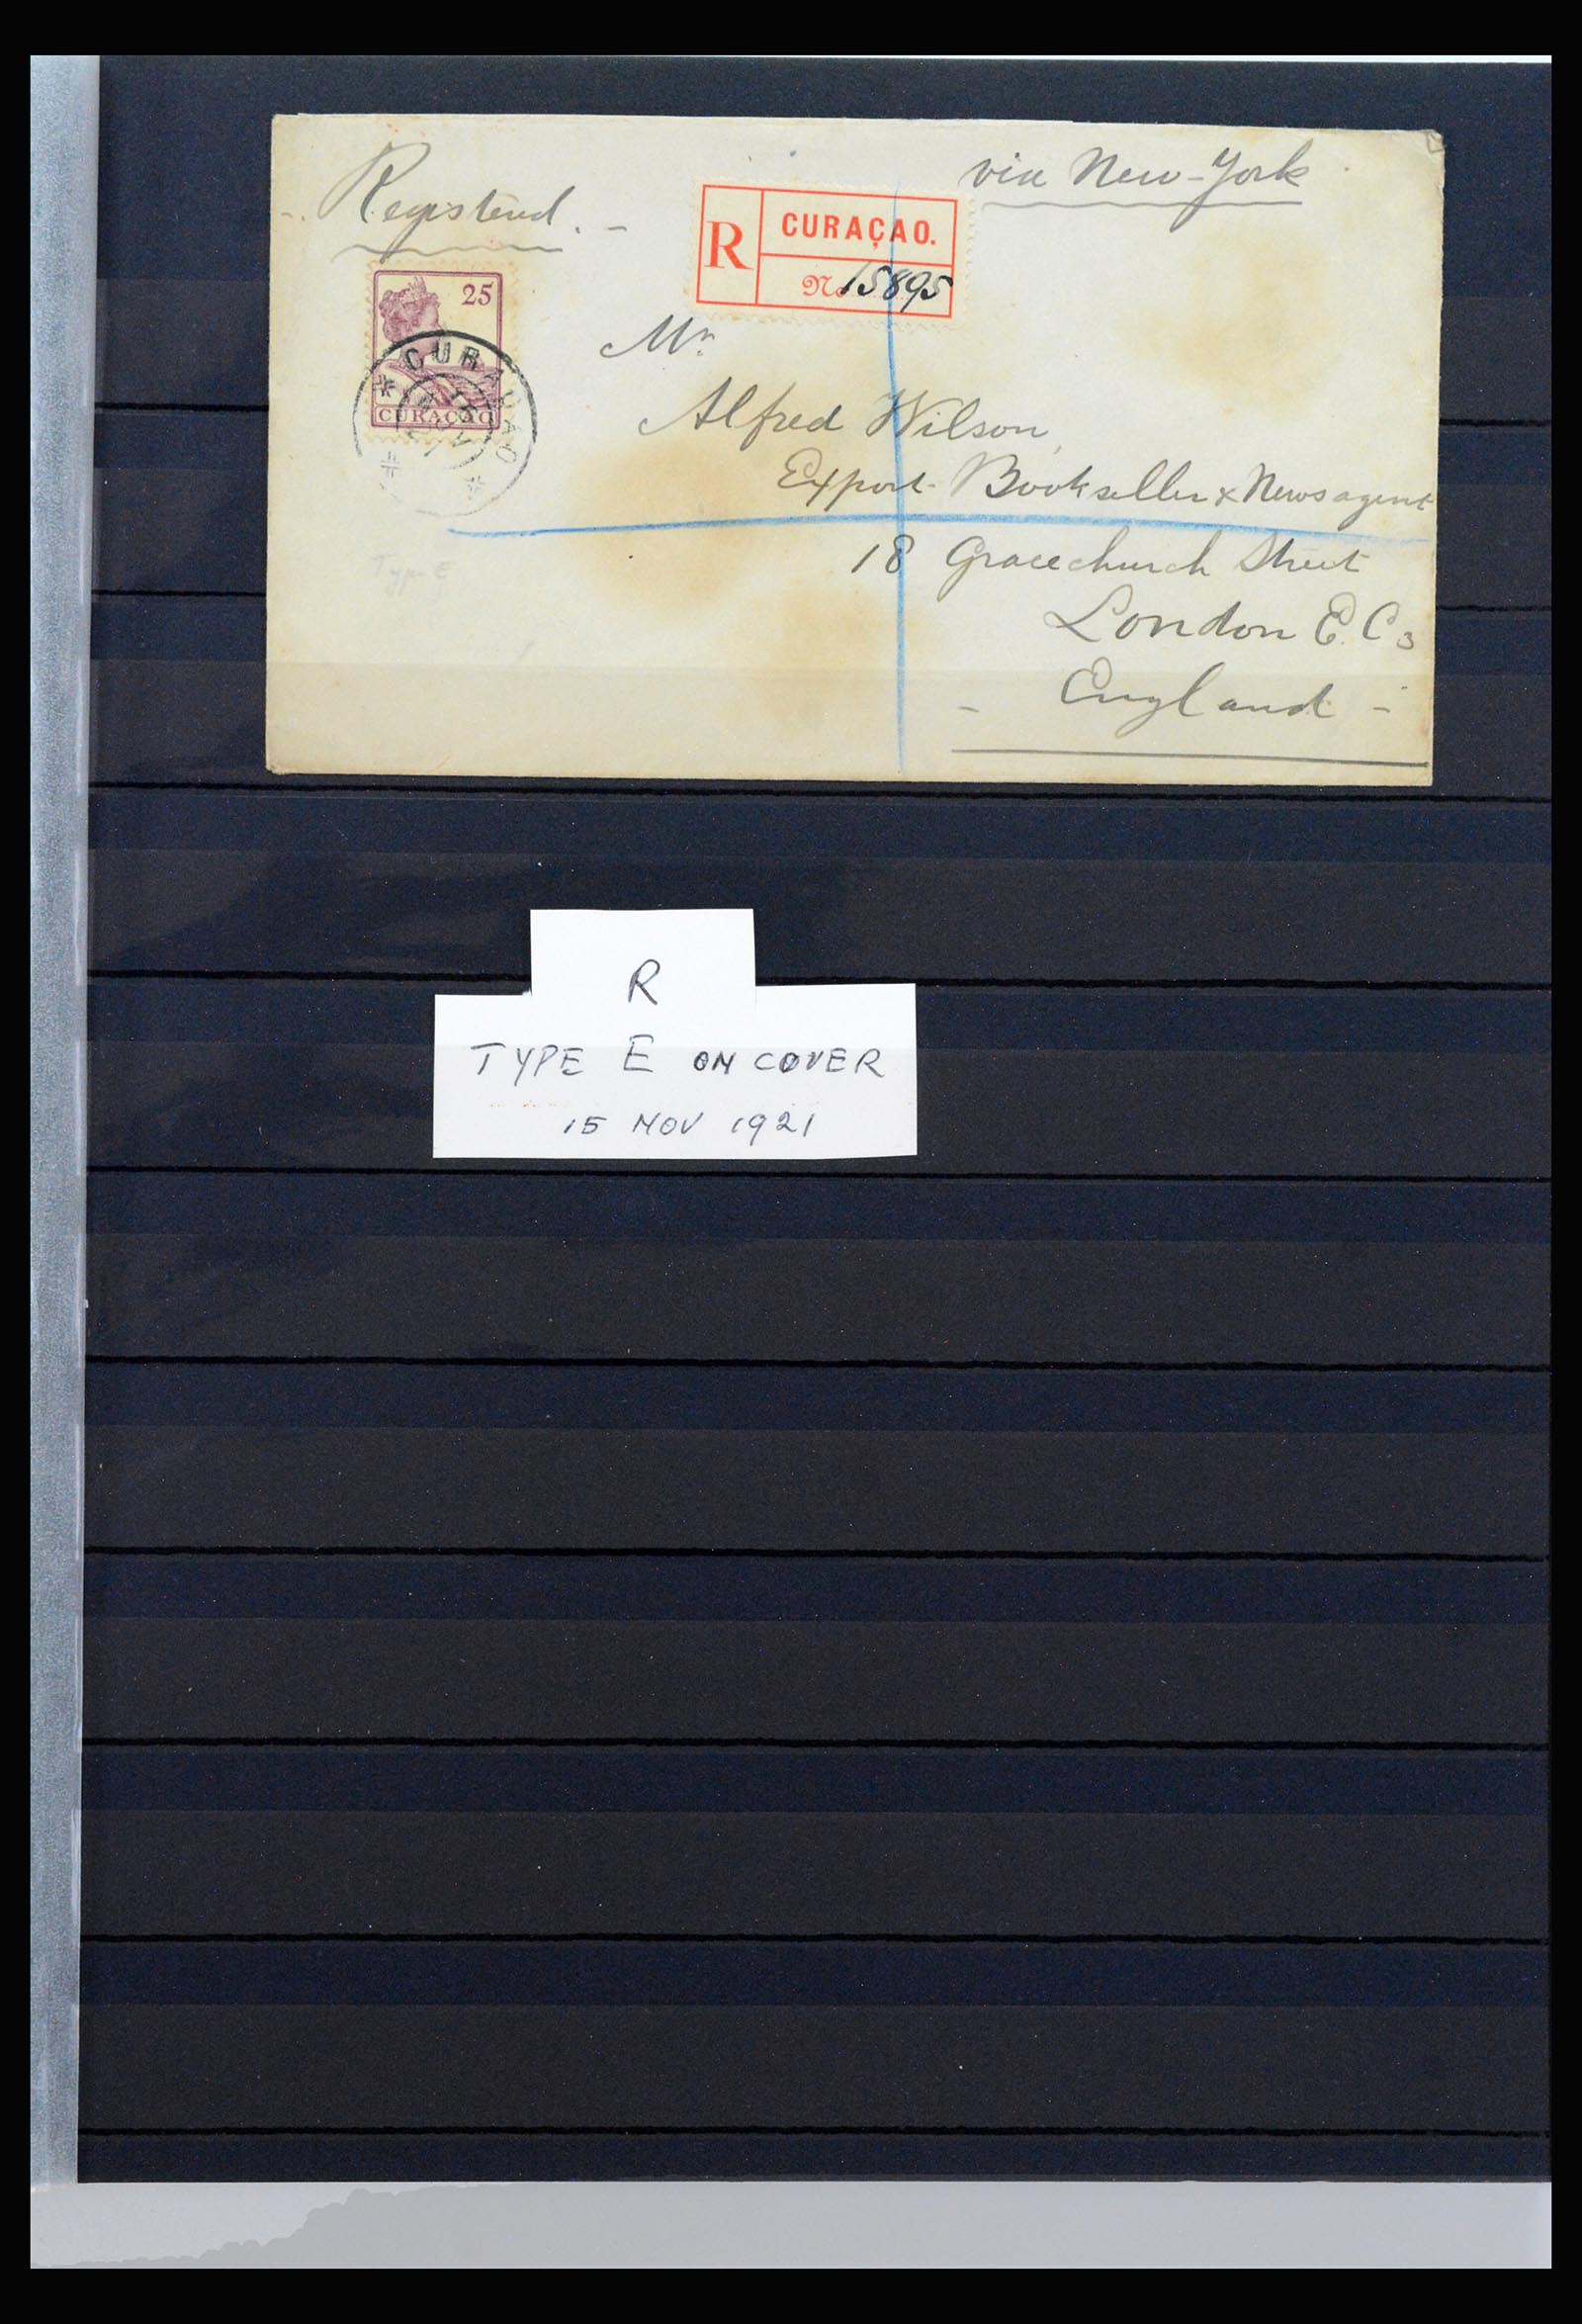 via New-York
Registered.
R
CURAÇAO.
No 15895
25
CURAÇAO
CURAÇAO
Mr.
Alfred Wilson,
Export Bookseller & Newsagent
18 Gracechurch Street
London E.C 3
England
Type E
R
TYPE E ON COVER
15 NOV 1921